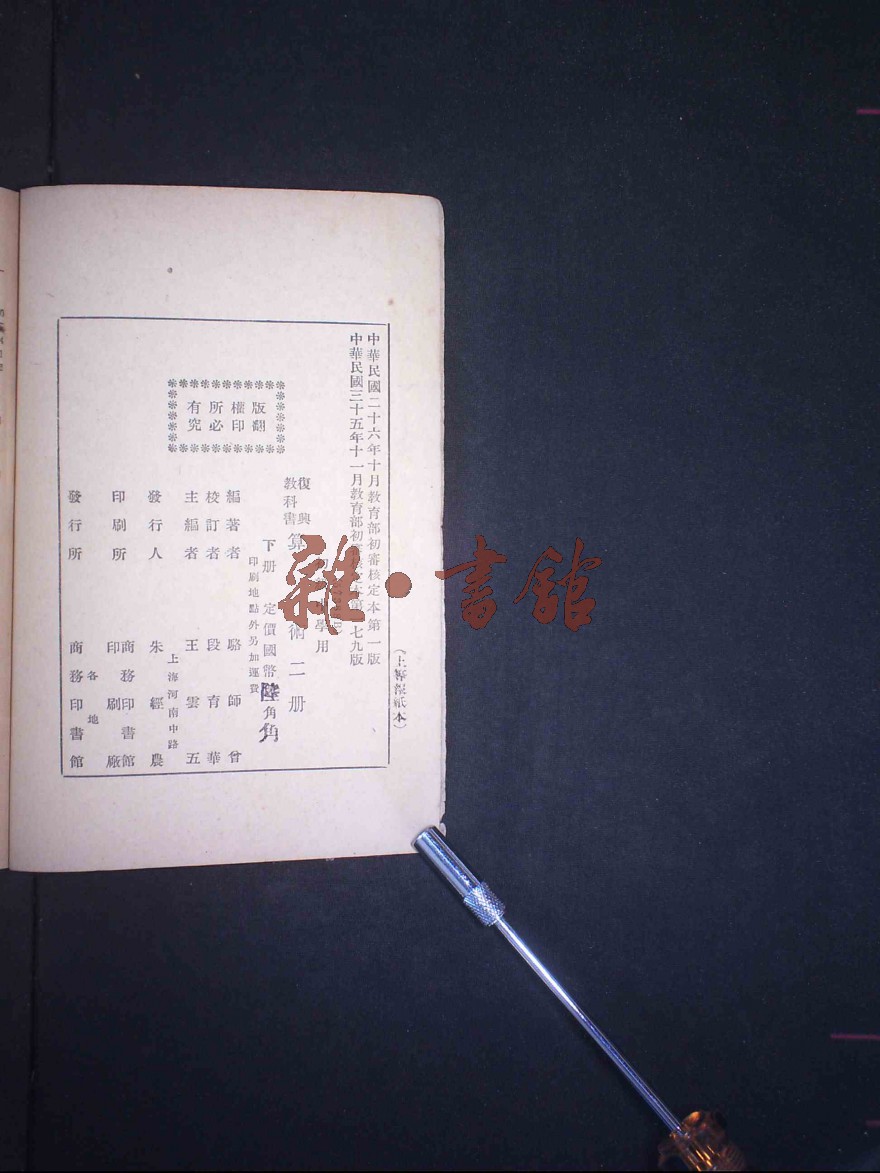 (上海報紙本)
中華民國二十六年十月教育部初審核定本第一版
中華民國三十五年十一月教育部初審核定本第七九版
初級中學用
復興
教科書
算術二册
下册 定價國幣陸角角
印刷地點外另加運費
版權所有
翻印必究
編著者 駱師曾
校訂者 段育華
主編者 王雲五
上海河南中路
發行人 朱經農
印刷所 商務印書館
印刷廠
發行所 各地
商務印書館
雜·書館